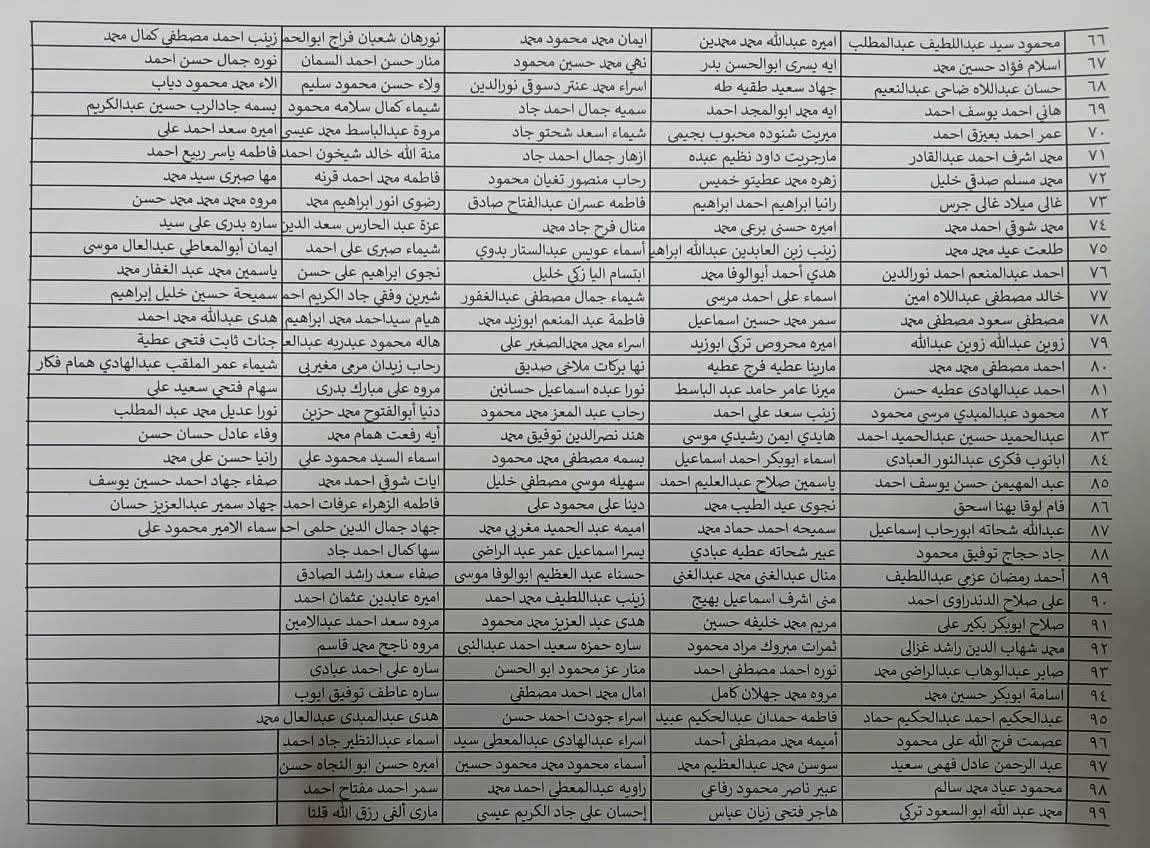 ٦٦ محمود سيد عبداللطيف عبدالمطلب اميره عبدالله محمد محمدين ايمان محمد محمود محمد نورهان شعبان فراج ابوالحم زينب احمد مصطفي كمال محمد
٦٧ اسلام فؤاد حسين محمد ايه يسرى ابوالحسن بدر نهي محمد حسين محمود منار حسن احمد السمان نوره جمال حسن احمد
٦٨ حسان عبداللاه ضاحى عبدالنعيم جهاد سعيد طقيه طه اسراء محمد عنتر دسوقى نورالدين ولاء حسن محمود سليم الاء محمد محمود دياب
٦٩ هانى احمد يوسف احمد ايه محمد ابوالمجد احمد سميه جمال احمد جاد شيماء كمال سلامه محمود بسمه جادالرب حسين عبدالكريم
٧٠ عمر احمد بعيزق احمد ميريت شنوده محبوب بجيمى شيماء اسعد شحتو جاد مروة عبدالباسط محمد عيسي اميره سعد احمد على
٧١ محمد اشرف احمد عبدالقادر مارجريت داود نظيم عبده ازهار جمال احمد جاد منة الله خالد شيخون احمد فاطمه ياسر ربيع احمد
٧٢ محمد مسلم صدقي خليل زهره محمد عطيتو خميس رحاب منصور تغيان محمود فاطمه محمد احمد قرنه مها صبرى سيد محمد
٧٣ غالى ميلاد غالى جرس رانيا ابراهيم احمد ابراهيم فاطمه عسران عبدالفتاح صادق رضوى انور ابراهيم محمد مروه محمد محمد حسن
٧٤ محمد شوقي احمد محمد اميره حسنى برعى محمد منال فرح جاد محمد عزة عبد الحارس سعد الدين ساره بدرى على سيد
٧٥ طلعت عيد محمد محمد زينب زين العابدين عبدالله ابراهي أسماء عويس عبدالستار بدوي شيماء صبرى على احمد ايمان أبوالمعاطي عبدالعال موسى
٧٦ احمد عبدالمنعم احمد نورالدين هدي أحمد أبوالوفا محمد ابتسام اليا زكي خليل نجوى ابراهيم على حسن ياسمين محمد عبد الغفار محمد
٧٧ خالد مصطفى عبداللاه امين اسماء على احمد مرسى شيماء جمال مصطفى عبدالغفور شيرين وفقي جاد الكريم احمد سميحة حسين خليل إبراهيم
٧٨ مصطفى سعود مصطفى محمد سمر محمد حسين اسماعيل فاطمة عبد المنعم ابوزيد محمد هيام سيداحمد محمد ابراهيم هدى عبدالله محمد احمد
٧٩ زوين عبدالله زوين عبدالله اميره محروص تركي ابوزيد اسراء محمد محمدالصغير على هاله محمود عبدربه عبدالع جنات ثابت فتحى عطية
٨٠ احمد مصطفى محمد محمد مارينا عطيه فرج عطيه نها بركات ملاخى صديق رحاب زيدان مرعى مغيربى شيماء عمر الملقب عبدالهادي همام فكار
٨١ احمد عبدالهادى عطيه حسن ميرنا عامر حامد عبد الباسط نورا عبده اسماعيل حسانين مروه على مبارك بدرى سهام فتحي سعيد علي
٨٢ محمود عبدالمبدي مرسي محمود زينب سعد على احمد رحاب عبد المعز محمد محمود دنيا أبوالفتوح محمد حزين نورا عديل محمد عبد المطلب
٨٣ عبدالحميد حسين عبدالحميد احمد هايدي ايمن رشيدي موسى هند نصرالدين توفيق محمد أيه رفعت همام محمد وفاء عادل حسان حسن
٨٤ ابانوب فكرى عبدالنور العبادى اسماء ابوبكر احمد اسماعيل بسمه مصطفى محمد محمود اسماء السيد محمود علي رانيا حسن على محمد
٨٥ عبد المهيمن حسن يوسف احمد ياسمين صلاح عبدالعليم احمد سهيله موسي مصطفي خليل ايات شوقي احمد محمد صفاء جهاد احمد حسين يوسف
٨٦ فام لوقا بهنا اسحق نجوى عيد الطيب محمد دينا على محمود على فاطمه الزهراء عرفات احمد جهاد سمير عبدالعزيز حسان
٨٧ عبدالله شحاته ابورحاب إسماعيل سميحه احمد حماد محمد اميمه عبد الحميد مغربي محمد جهاد جمال الدين حلمى احم سماء الامير محمود على
٨٨ جاد حجاج توفيق محمود عبير شحاته عطيه عبادي يسرا اسماعيل عمر عبد الراضي سها كمال احمد جاد
٨٩ أحمد رمضان عزمى عبداللطيف منال عبدالغني محمد عبدالغنى حسناء عبد العظيم ابوالوفا موسى صفاء سعد راشد الصادق
٩٠ على صلاح الدندراوى احمد منى اشرف اسماعيل بهيج زينب عبداللطيف محمد احمد اميره عابدين عثمان احمد
٩١ صلاح ابوبكر بكير على مريم محمد خليفه حسين هدى عبد العزيز محمد محمود مروه سعد احمد عبدالامين
٩٢ محمد شهاب الدين راشد غزالى ثمرات مبروك مراد محمود ساره حمزه سعيد احمد عبدالنبى مروه ناجح محمد قاسم
٩٣ صابر عبدالوهاب عبدالراضى محمد نوره احمد مصطفى احمد منار عز محمود ابو الحسن ساره على احمد عبادى
٩٤ اسامة ابوبكر حسين محمد مروه محمد جهلان كامل امال محمد احمد مصطفى ساره عاطف توفيق ايوب
٩٥ عبدالحكيم احمد عبدالحكيم حماد فاطمه حمدان عبدالحكيم عبيد اسراء جودت احمد حسن هدى عبدالمبدى عبدالعال محمد
٩٦ عصمت فرج الله على محمود أميمه محمد مصطفى أحمد اسراء عبدالهادى عبدالمعطى سيد اسماء عبدالنظير جاد احمد
٩٧ عبد الرحمن عادل فهمى سعيد سوسن محمد عبدالعظيم محمد أسماء محمود محمد محمود حسين اميره حسن ابو النجاه حسن
٩٨ محمود عياد محمد سالم عبير ناصر محمود رفاعي راويه عبدالمعطي احمد محمد سمر احمد مفتاح احمد
٩٩ محمد عبد الله ابو السعود تركي هاجر فتحى زيان عباس إحسان على جاد الكريم عيسى مارى ألفى رزق الله قلتا